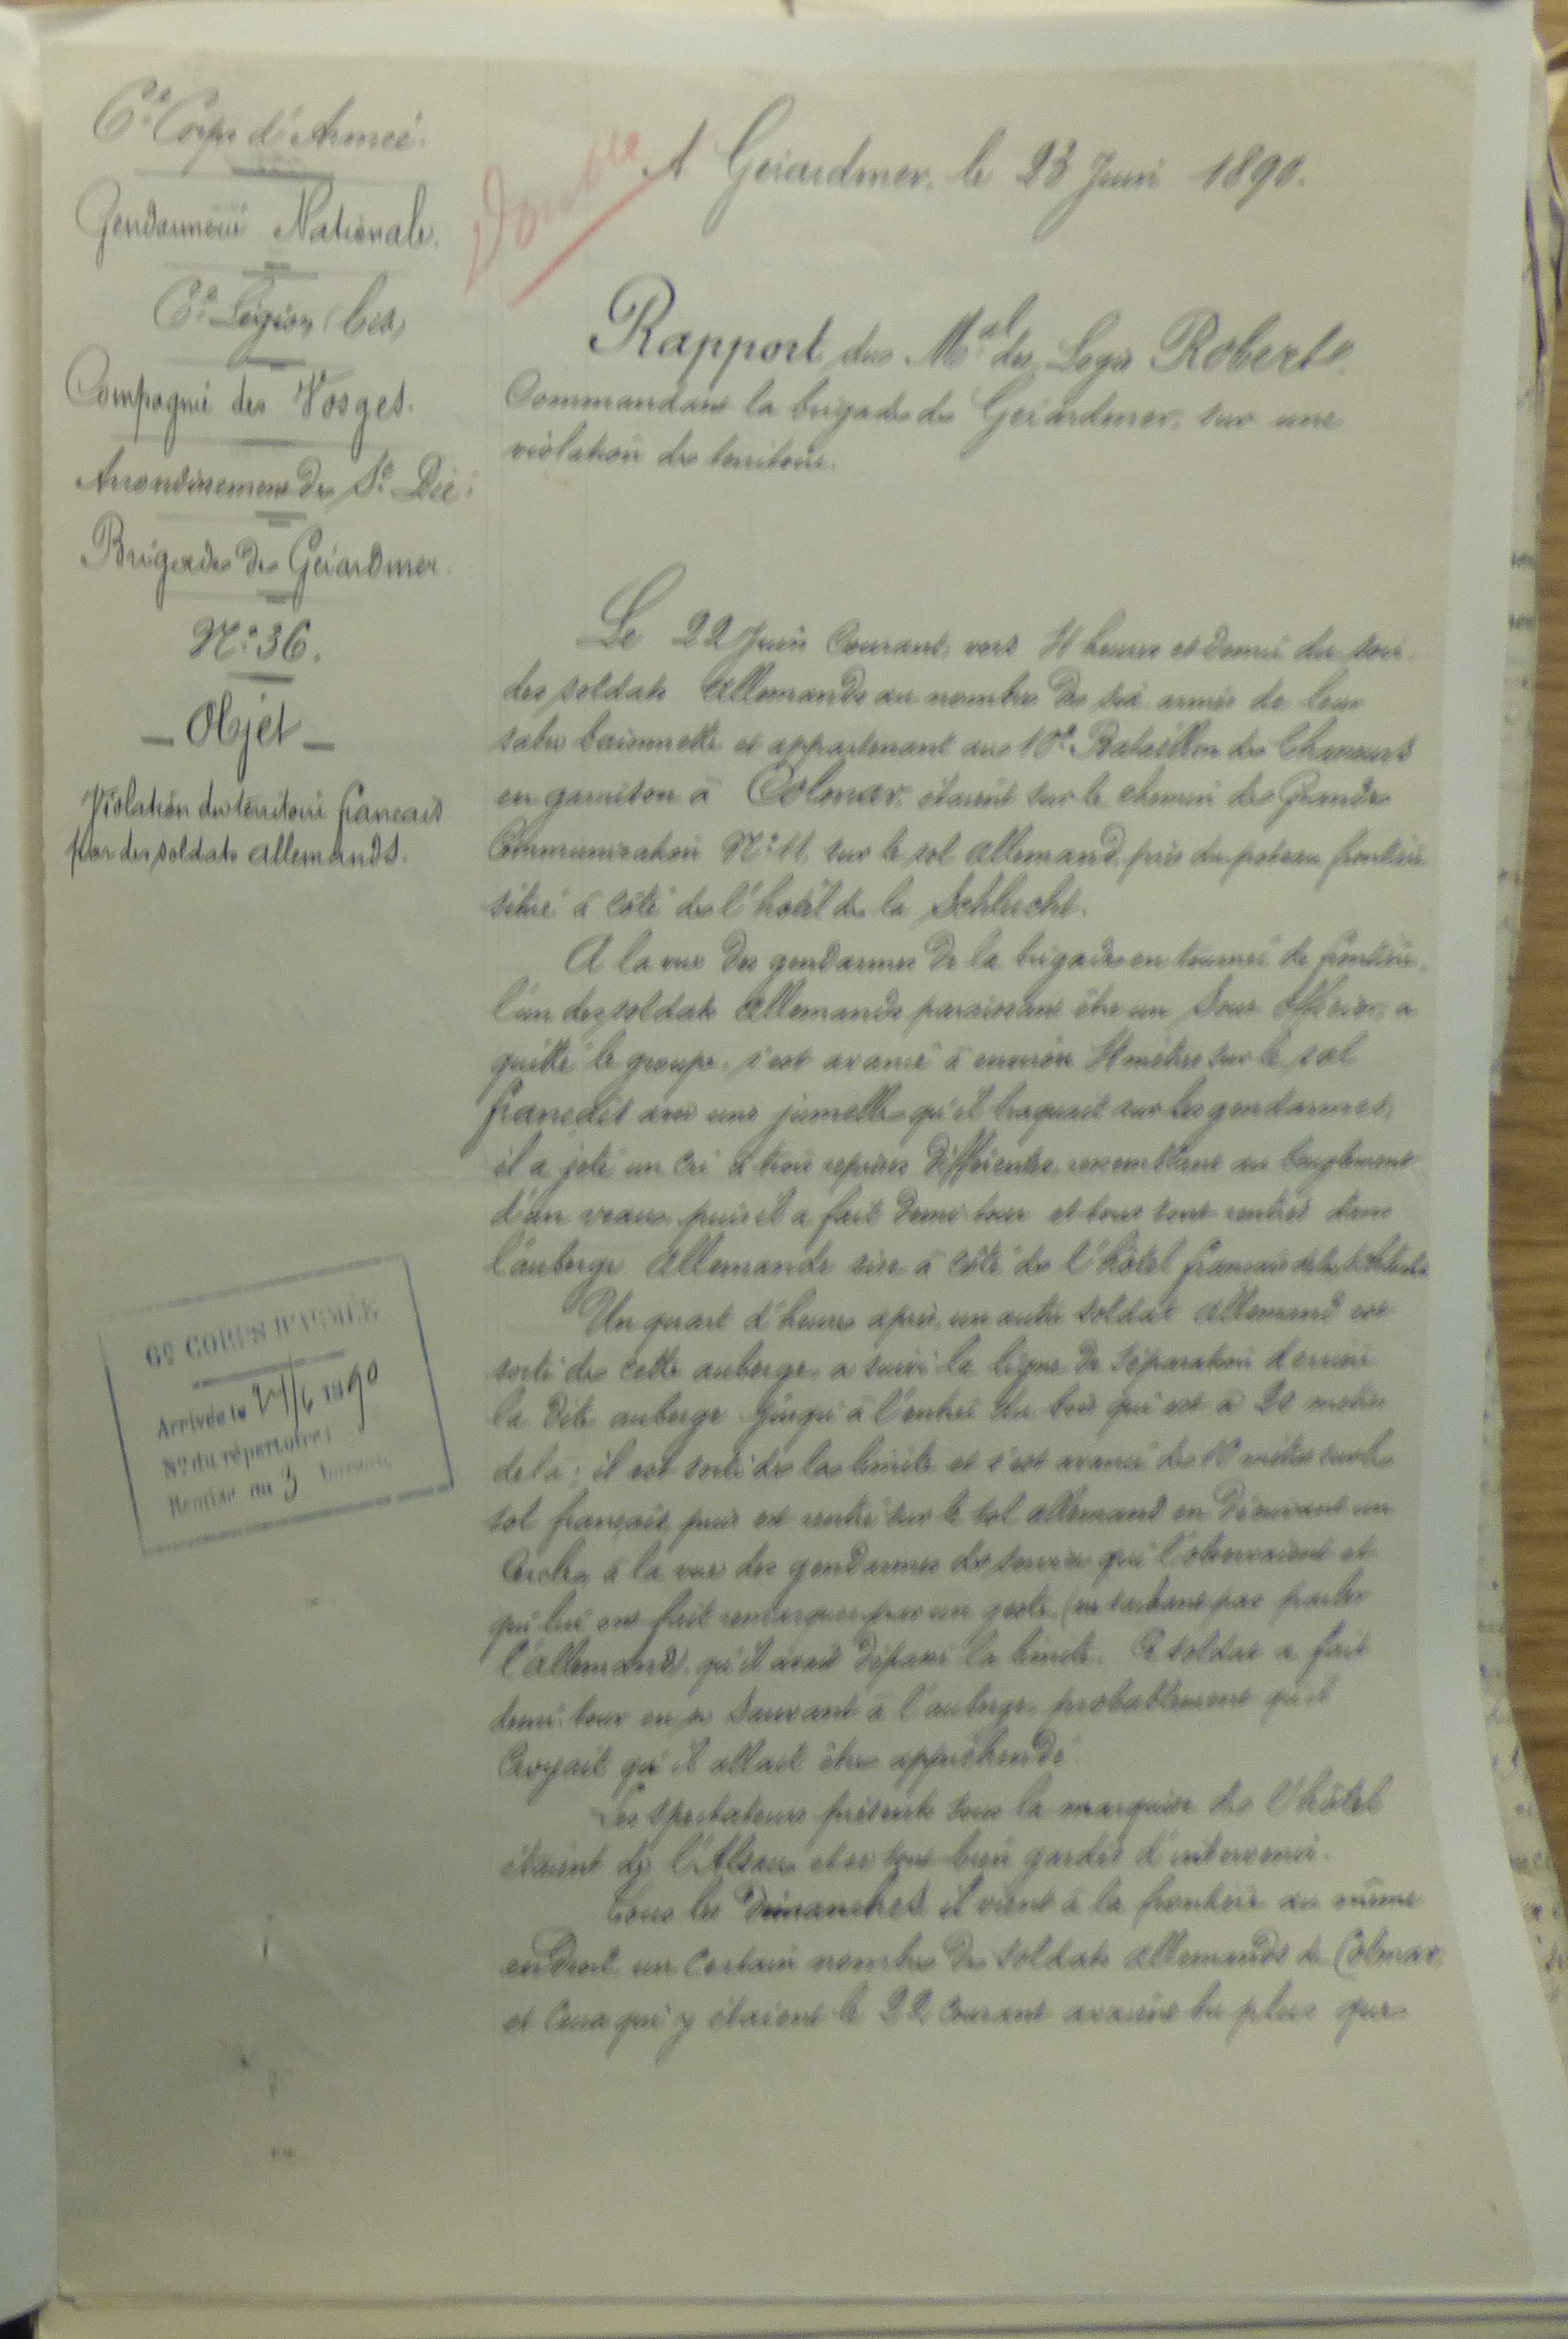 6e Corps d'Armée.
Gendarmerie Nationale.
6e Légion (bis)
Compagnie des Vosges.
Arrondissement de St Dié.
Brigade de Gérardmer.
N° 36.
_ Objet _
Violation du territoire français
par des soldats allemands.
6e CORPS D'ARMÉE
Arrivée le 24/6 1890
No du répertoire:
Remise au 3 bureau
Double
A Gérardmer, le 23 Juin 1890.
Rapport du Mal des Logis Robert
Commandant la brigade de Gérardmer, sur une
violation de territoire.
Le 22 Juin Courant, vers 4 heures et demie du soir
des soldats allemands au nombre de six armés de leur
sabre baïonnette et appartenant au 10e Bataillon de Chasseurs
en garnison à Colmar, étaient sur le chemin de Grande
Communication N° 11, sur le sol allemand, près du poteau frontière
situé à côté de l'hôtel de la Schlucht.
A la vue des gendarmes de la brigade en tournée de frontière,
l'un des soldats allemands paraissant être un Sous Officier, a
quitté le groupe, s'est avancé à environ 4 mètres sur le sol
français avec une jumelle qu'il braquait sur les gendarmes,
il a jeté un cri à trois reprises différentes, ressemblant au beuglement
d'un veau, puis il a fait demi-tour et tous sont rentrés dans
l'auberge allemande sise à côté de l'hôtel français de la Schlucht.
Un quart d'heure après, un autre soldat allemand est
sorti de cette auberge, a suivi la ligne de séparation derrière
la dite auberge jusqu'à l'entrée du bois qui est à 20 mètres
de là; il est sorti de la limite et s'est avancé de 10 mètres sur le
sol français, puis est rentré sur le sol allemand en décrivant un
Cercle, à la vue des gendarmes de service qui l'observaient et
qui lui ont fait remarquer par un geste, (ne sachant pas parler
l'allemand), qu'il avait dépassé la limite. Ce soldat a fait
demi-tour en se sauvant à l'auberge, probablement qu'il
Croyait qu'il allait être appréhendé.
Les spectateurs présents sous la marquise de l'hôtel
étaient de l'Alsace et se sont bien gardés d'intervenir.
Tous les Dimanches il vient à la frontière au même
endroit un certain nombre de soldats allemands de Colmar,
et Ceux qui y étaient le 22 Courant avaient bu plus que